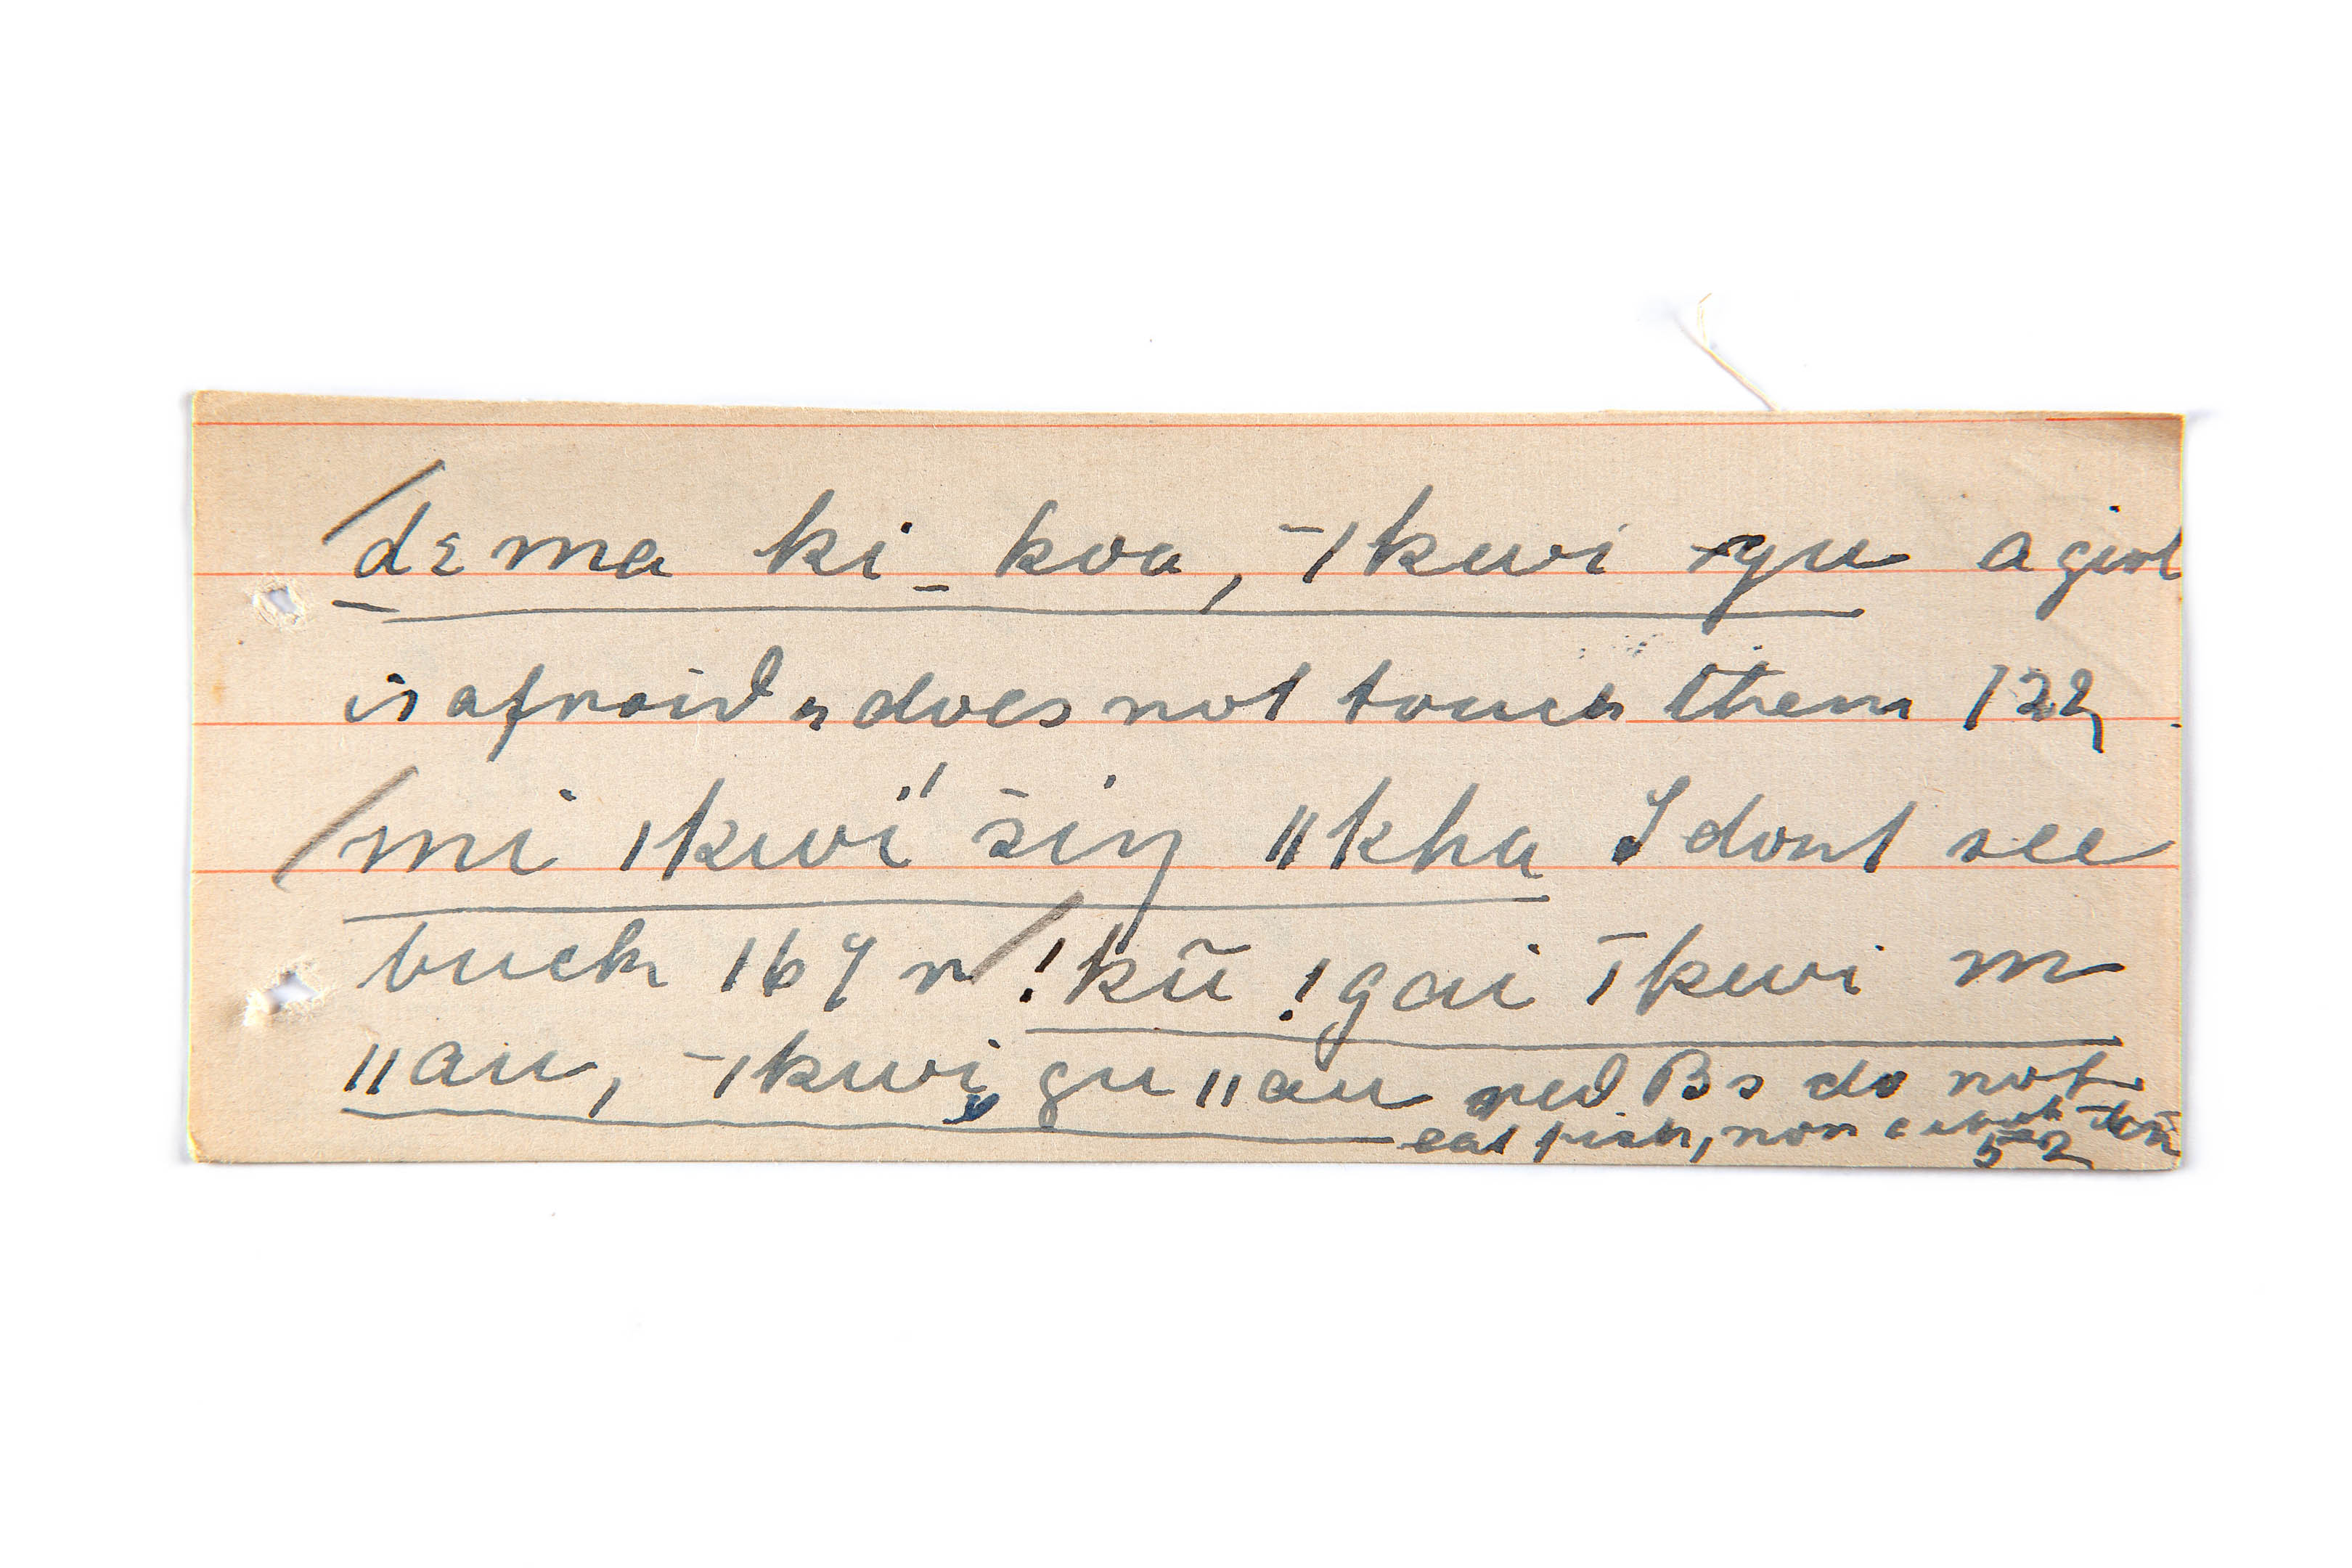 /dɛma ki_koa, ˉ|kwi gu a girl
is afraid & does not touch them 122
/mi |kwi" šiŋ ǁkha I dont see
buck 169 r /!kũ !gai ˉ|kwi m
ǁau, ˉ|kwi gu ǁau red Bs do not
eat fish, non
52